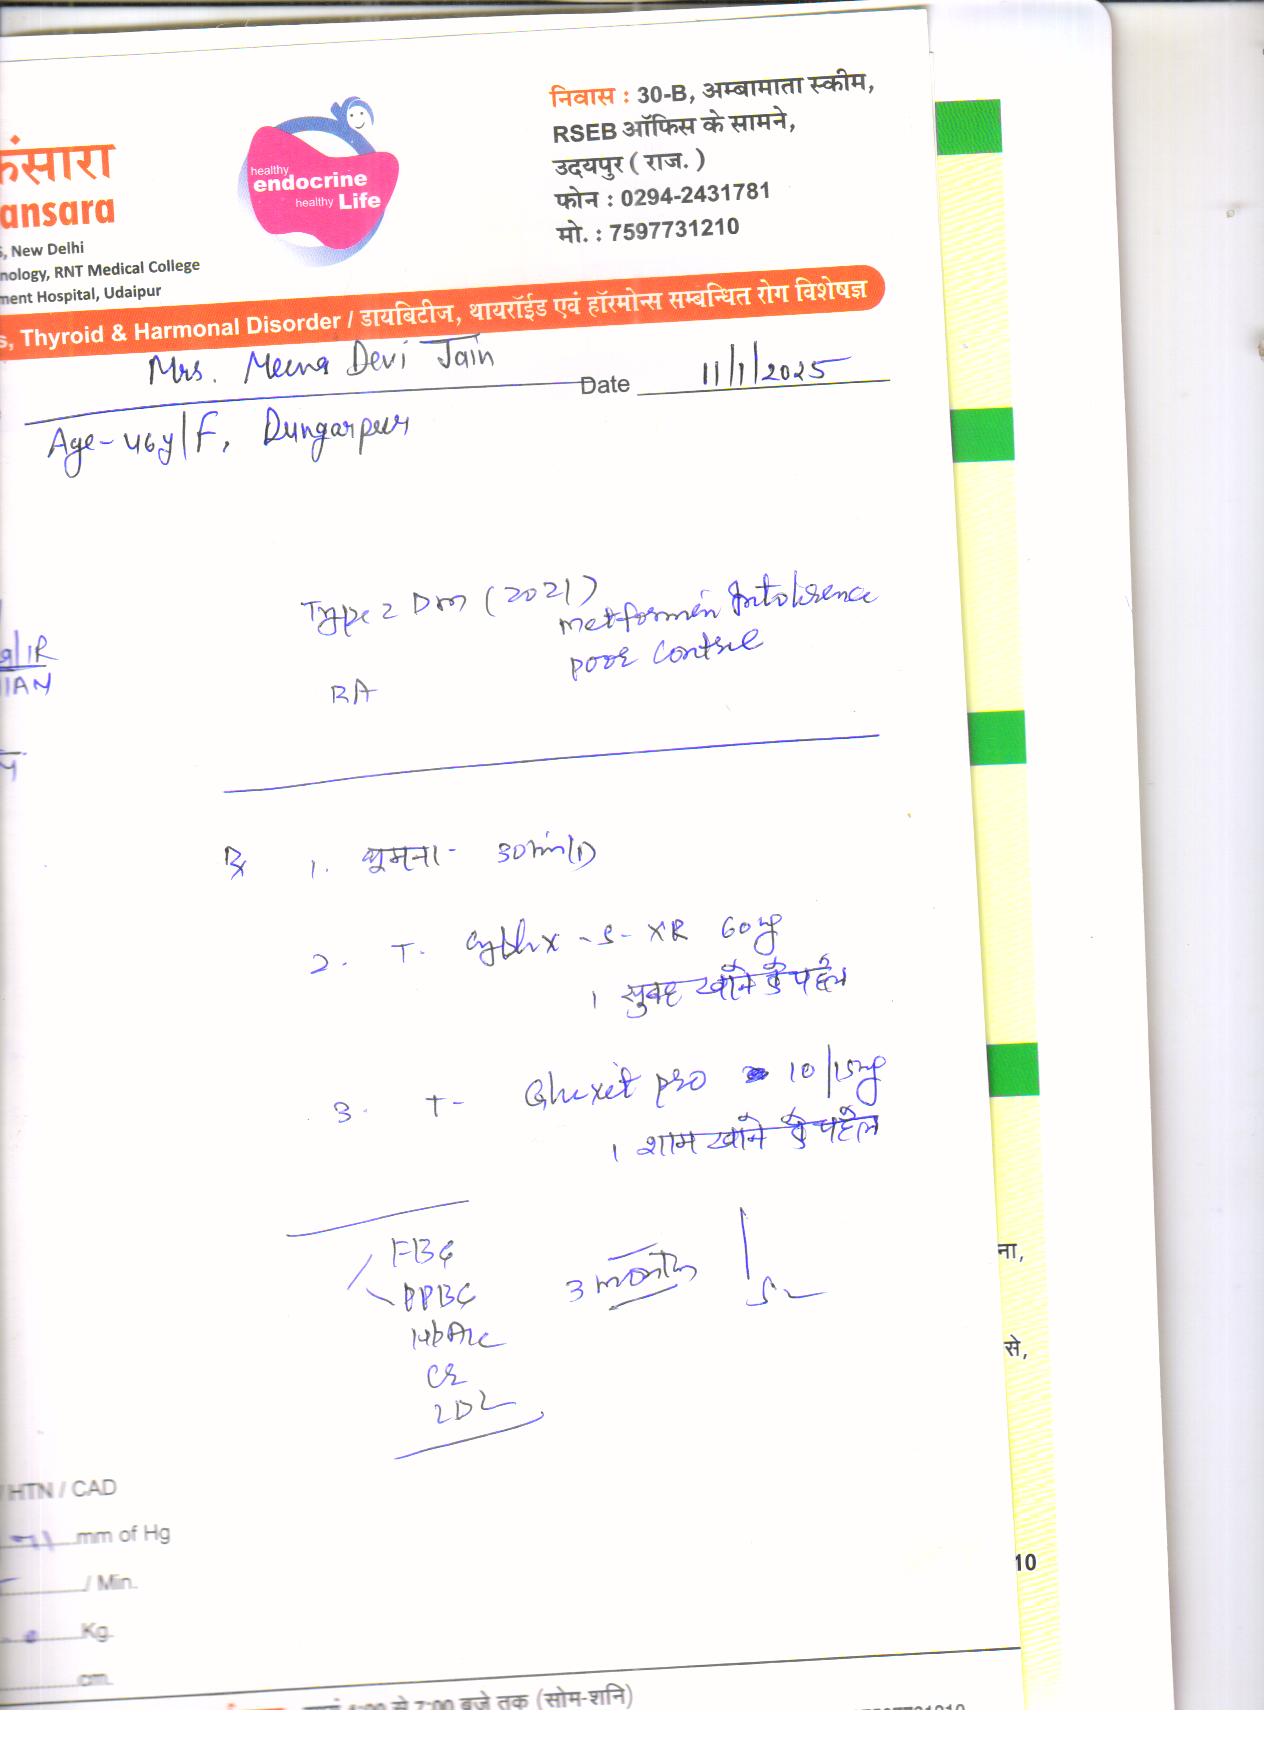 कंसारा
ansara
, New Delhi
nology, RNT Medical College
ment Hospital, Udaipur
healthy
endocrine
healthy Life
निवास : 30-B, अम्बामाता स्कीम,
RSEB ऑफिस के सामने,
उदयपुर ( राज. )
फोन : 0294-2431781
मो. : 7597731210
s, Thyroid & Harmonal Disorder / डायबिटीज, थायरॉईड एवं हॉरमोन्स सम्बन्धित रोग विशेषज्ञ
Mrs. Meena Devi Jain
Date 11/1/2025
Age- 46y/F, Dungarpur
Type 2 Dm (2021)
Metformin Intolerence
poor Control
RA
Rx 1. घूमना- 30min/D
2. T. -S- XR 60mg
1 सुबह खाने से पहले
3. T- pro 10/15mg
1 शाम खाने से पहले
FBG
PPBG
HbA1c
Cr
LDL
3 month
ना,
से,
/ HTN / CAD
mm of Hg
/ Min.
Kg.
cm.
10
से 7:00 बजे तक (सोम-शनि)